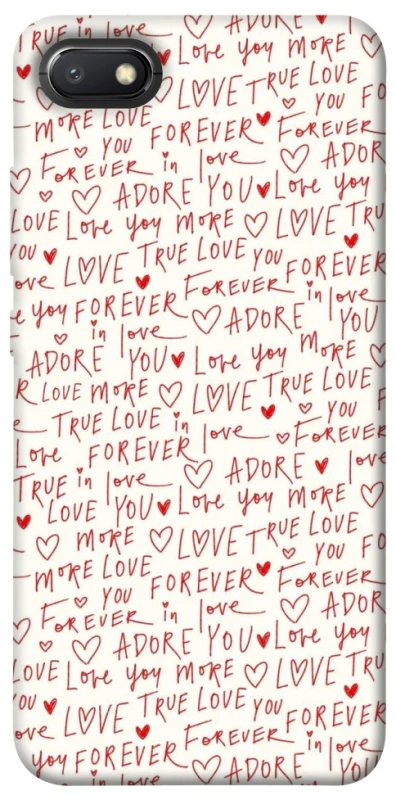 TRUE in love Love you MORE ADORE
LOVE TRUE LOVE
MORE LOVE YOU FO
YOU FOREVER FOREVER
FOREVER in love ADOR
ADORE YOU Love you
LOVE Love you MORE LOVE TRU
YOU TRUE LOVE YOU FOREVER
ove LOVE FOREVER in love
e you FOREVER ADORE YOU
in love MORE
ADORE YOU Love you
R LOVE MORE LOVE TRUE LOVE
e TRUE LOVE in YOU
Love FOREVER love FOREVER
TRUE in love ADORE love
LOVE YOU Love you MORE
MORE LOVE TRUE LOVE
MORE LOVE YOU FO
YOU FOREVER FOREVER
FOREVER in love ADOR
ADORE YOU Love you
LOVE Love you MORE LOVE TRU
YOU TRUE LOVE YOU FOREVER
ove LOVE FOREVER in love
you FOREVER ADORE YOU
in love